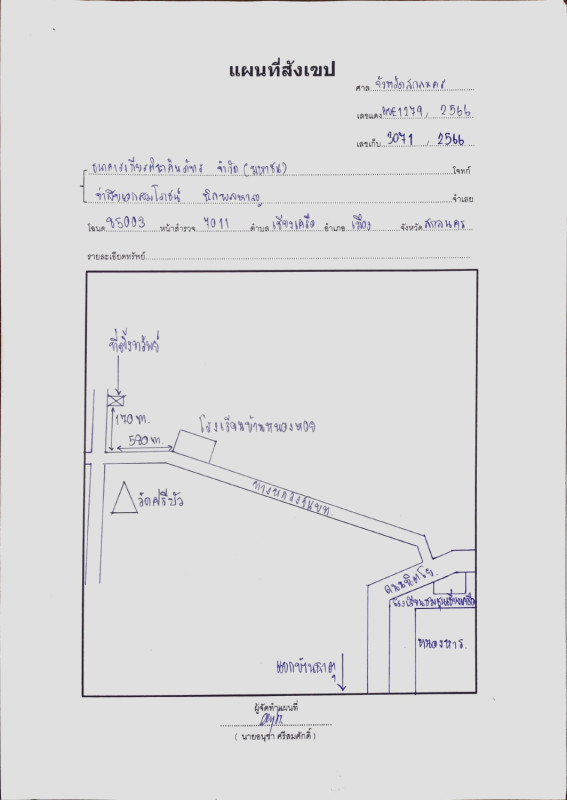 แผนที่สังเขป
ศาล จังหวัดสกลนคร
เลขแดง ผบE1279, 2566
เลขเก็บ 3071, 2566
ธนาคารเกียรตินาคินภัทร จำกัด (มหาชน) โจทก์
จ่าสิบเอกสมโภชน์ จำเลย
โฉนด 85003 หน้าสำรวจ 7011 ตำบล เชียงเครือ อำเภอ เมือง จังหวัด สกลนคร
รายละเอียดทรัพย์
ที่ตั้งทรัพย์
170 ม.
580 ม.
โรงเรียนบ้านหนองหอย
วัดศรีบัว
ทางหลวงชนบท.
ถนนนิตโย.
โรงเรียนชุมชนเชียงเครือ
หนองหาร.
แยกบ้านธาตุ
ผู้จัดทำแผนที่
( นายอนุชา ศรีสมศักดิ์ )